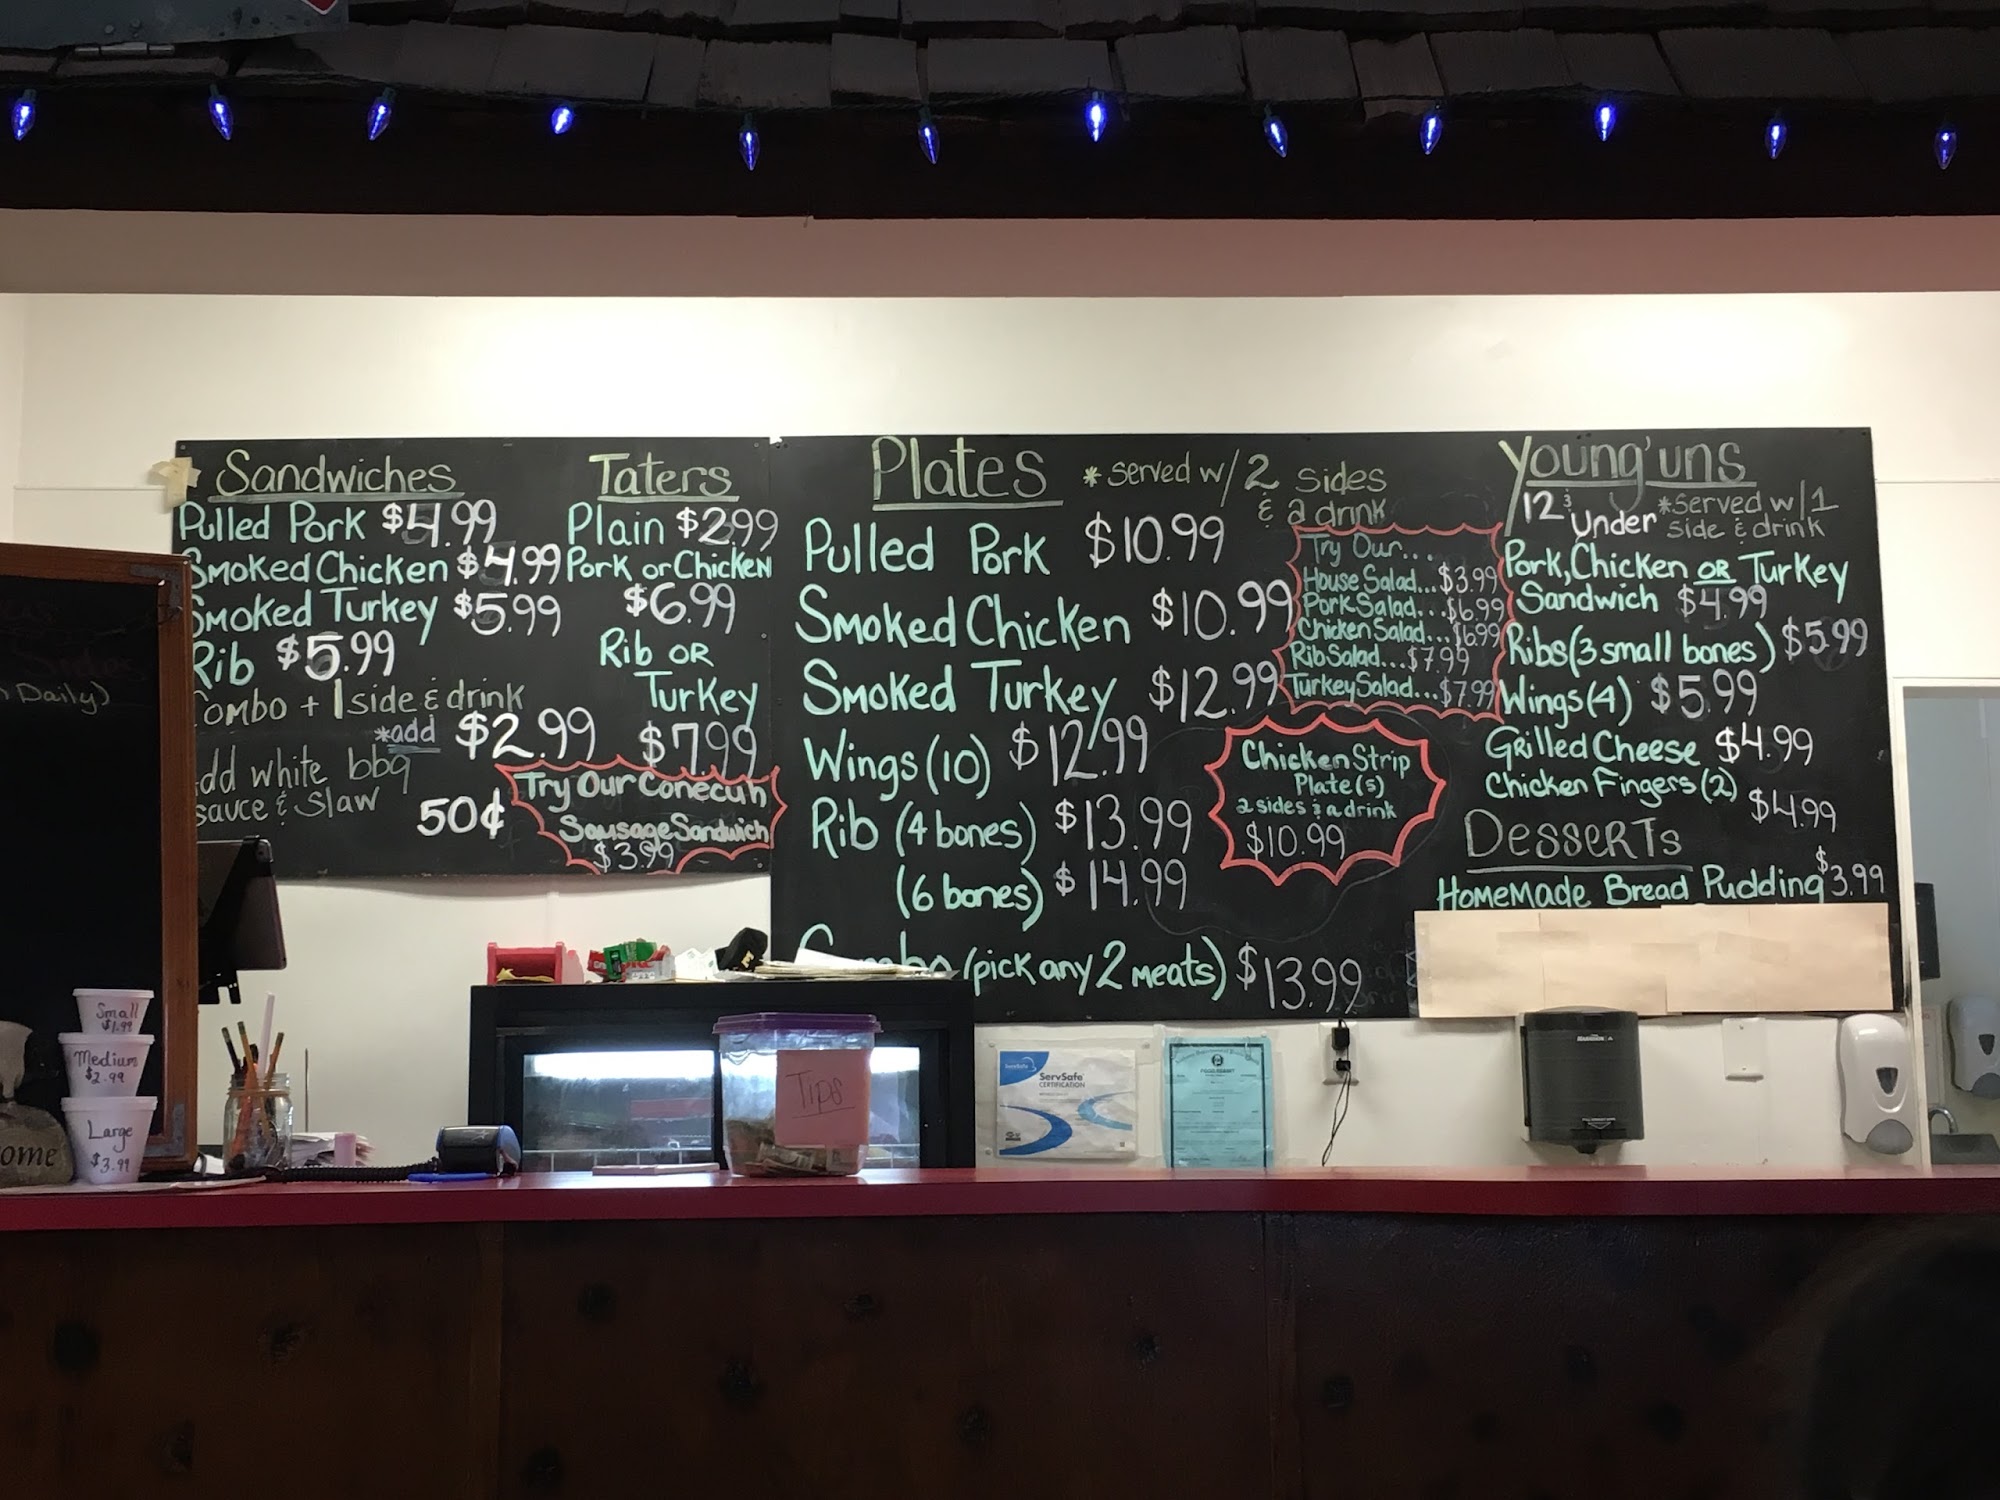 Sandwiches
Pulled Pork $4.99
Smoked Chicken $4.99
Smoked Turkey $5.99
Rib $5.99
Combo + 1 side & drink
*add $2.99
add white bbq
sauce & slaw
50¢
Taters
Plain $2.99
Pork or Chicken
$6.99
Rib or
Turkey
$7.99
Try Our Conecuh
Sausage Sandwich
$3.99
Plates *served w/ 2 sides
& a drink
Pulled Pork $10.99
Smoked Chicken $10.99
Smoked Turkey $12.99
Wings (10) $12.99
Rib (4 bones) $13.99
(6 bones) $14.99
Combo (pick any 2 meats) $13.99
Try Our...
House Salad...$3.99
Pork Salad...$6.99
Chicken Salad...$6.99
Rib Salad...$7.99
Turkey Salad...$7.99
Chicken Strip
Plate(s)
2 sides & a drink
$10.99
Young'uns
12 & Under *served w/1
side & drink
Pork, Chicken or Turkey
Sandwich $4.99
Ribs (3 small bones) $5.99
Wings (4) $5.99
Grilled Cheese $4.99
Chicken Fingers (2)
$4.99
Desserts
Homemade Bread Pudding $3.99
Daily)
Small
$1.99
Medium
$2.99
Large
$3.99
Tips
ServSafe
CERTIFICATION
FOOD PERMIT